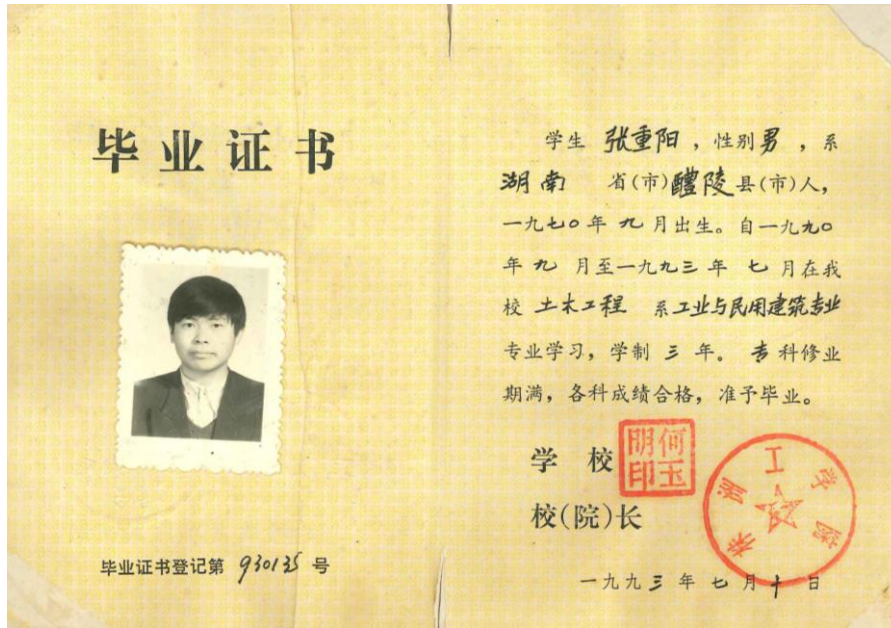 毕业证书
毕业证书登记第 930135 号
学生 张重阳 ，性别 男 ，系
湖南 省(市) 醴陵 县(市)人，
一九七〇年 九 月出生。自一九九〇
年 九 月至一九九三 年 七 月在我
校 土木工程 系 工业与民用建筑专业
专业学习，学制 三 年。 专 科修业
期满，各科成绩合格，准予毕业。
学 校
校(院)长
何玉明印
一九九三 年 七 月 十 日